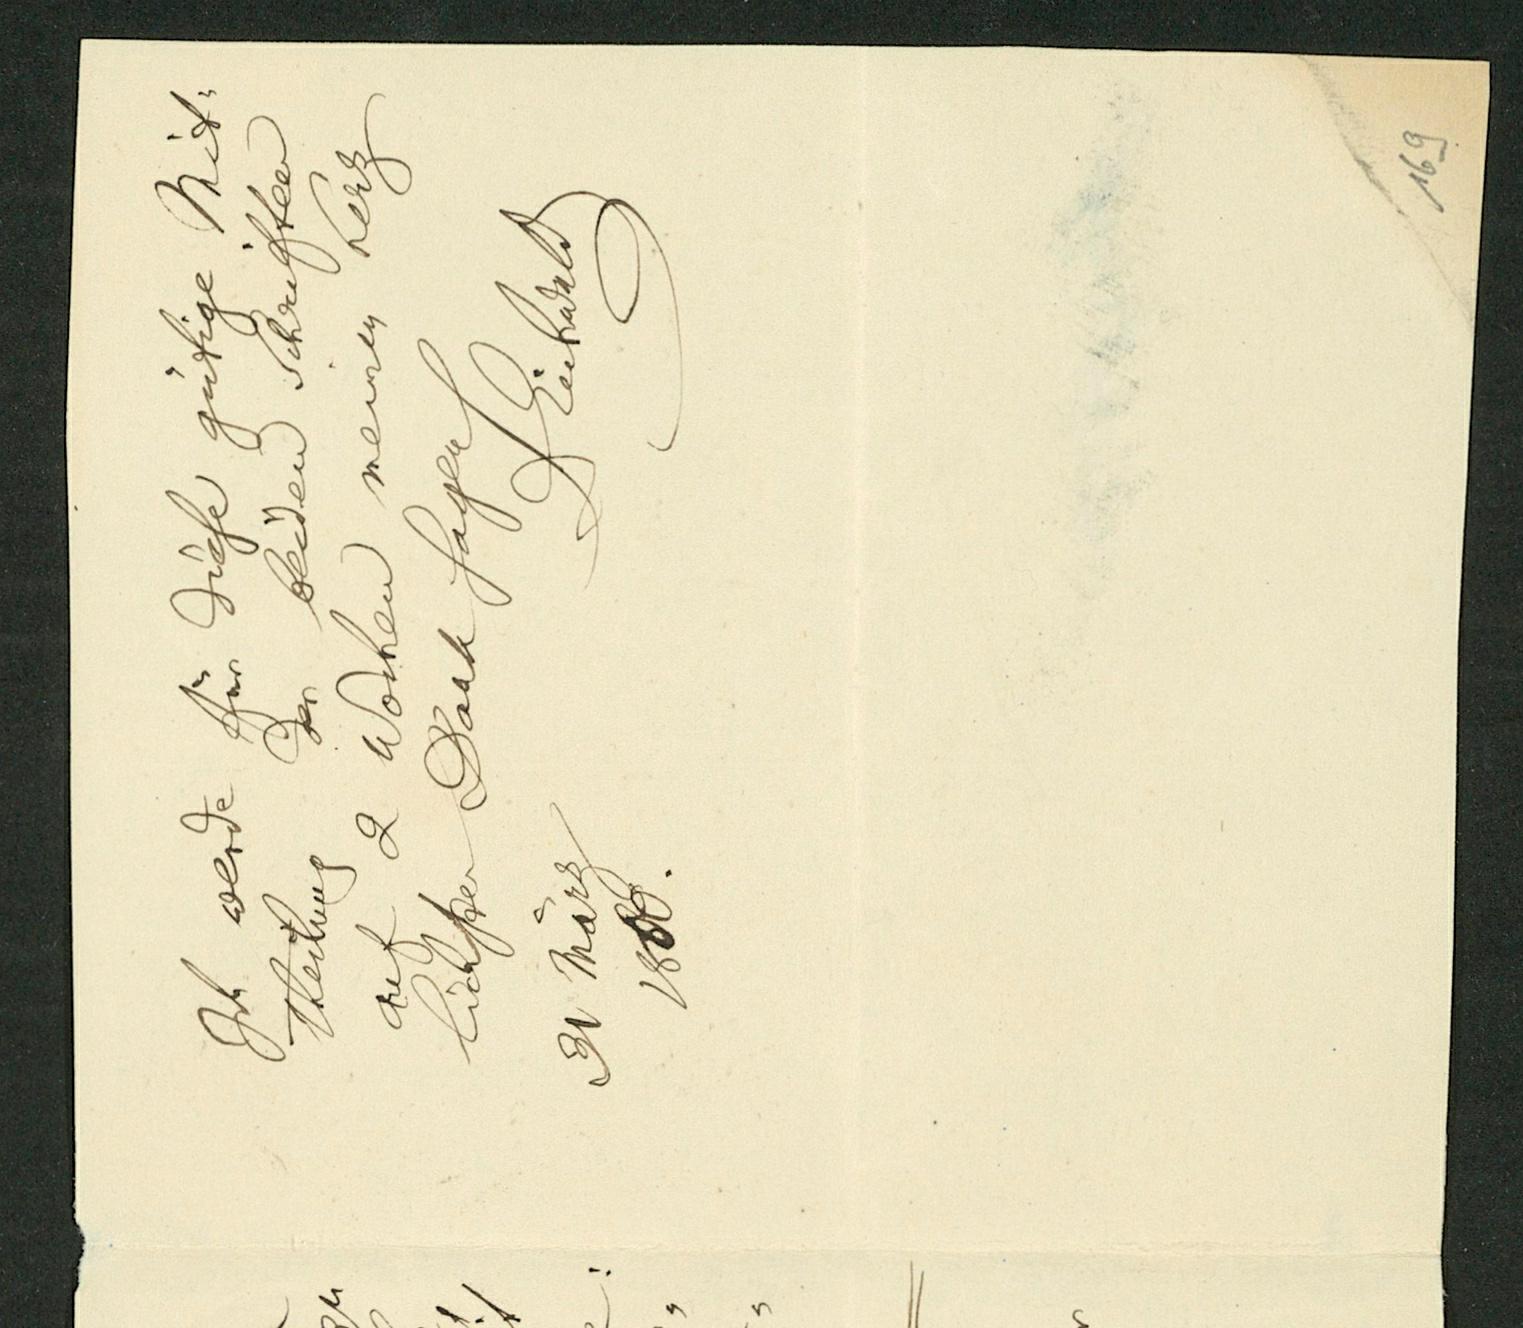 Ich werde für diese gütige Mit-
theilung der beiden Schriften
auf 2 Wochen meinen herz
lichsten Dank sagen
D Eichwald
März
169